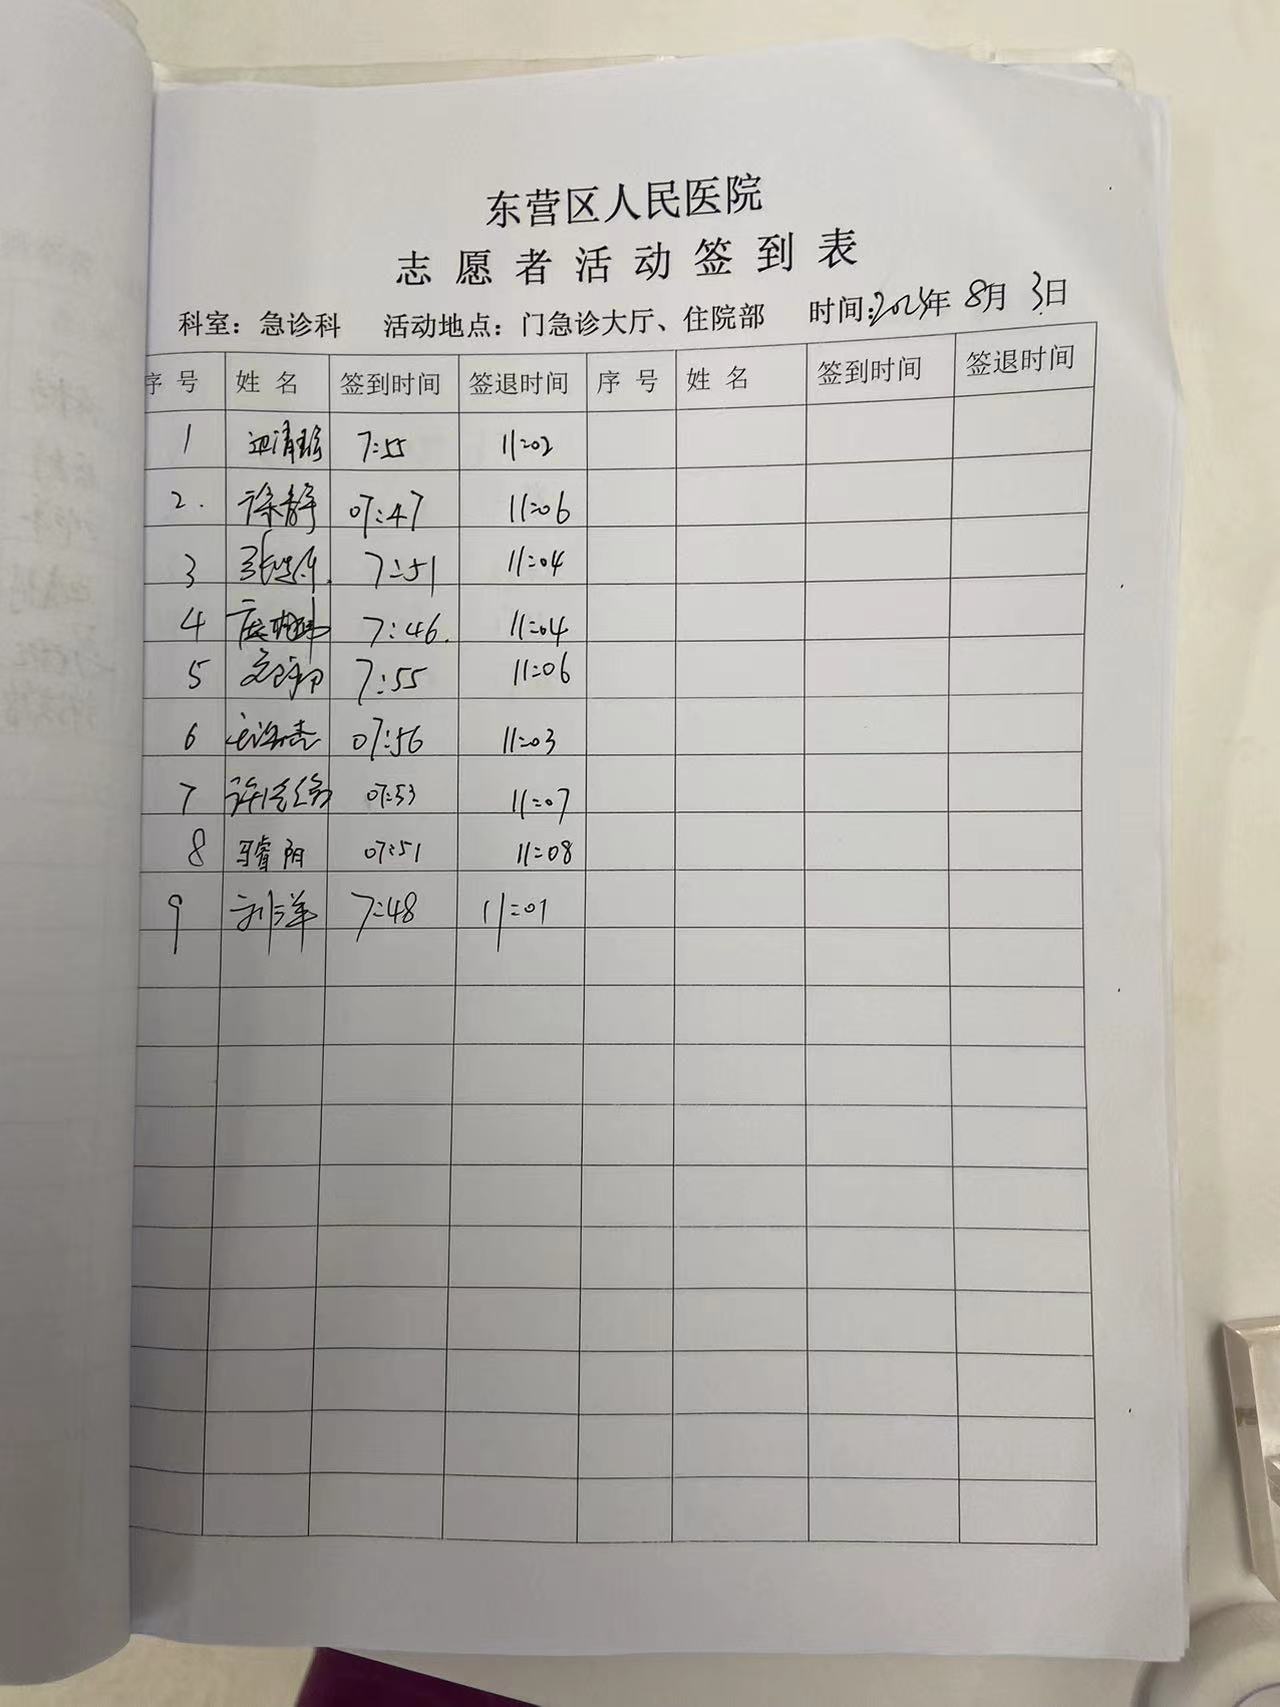 东营区人民医院
志愿者活动签到表
科室：急诊科 活动地点：门急诊大厅、住院部 时间：2024年8月3日
序号 姓名 签到时间 签退时间 序号 姓名 签到时间 签退时间
1 7:55 11:02
2. 徐静 07:47 11:06
3 7:51 11:04
4 7:46. 11:04
5 7:55 11:06
6 07:56 11:03
7 07:53 11:07
8 马睿阳 07:51 11:08
9 刘洋 7:48 11:01